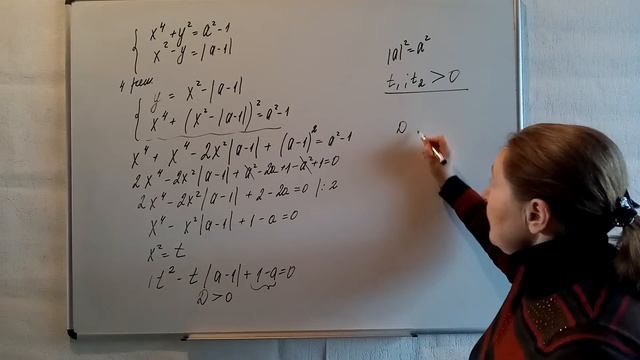 x⁴ + y² = a² - 1
x² - y = |a-1|
4 реш
y = x² - |a-1|
x⁴ + (x² - |a-1|)² = a² - 1
x⁴ + x⁴ - 2x²|a-1| + (a-1)² = a² - 1
2x⁴ - 2x²|a-1| + a² - 2a + 1 - a² + 1 = 0
2x⁴ - 2x²|a-1| + 2 - 2a = 0 /: 2
x⁴ - x²|a-1| + 1 - a = 0
x² = t
1t² - t|a-1| + 1 - a = 0
D > 0
|a|² = a²
t₁ ; t₂ > 0
D